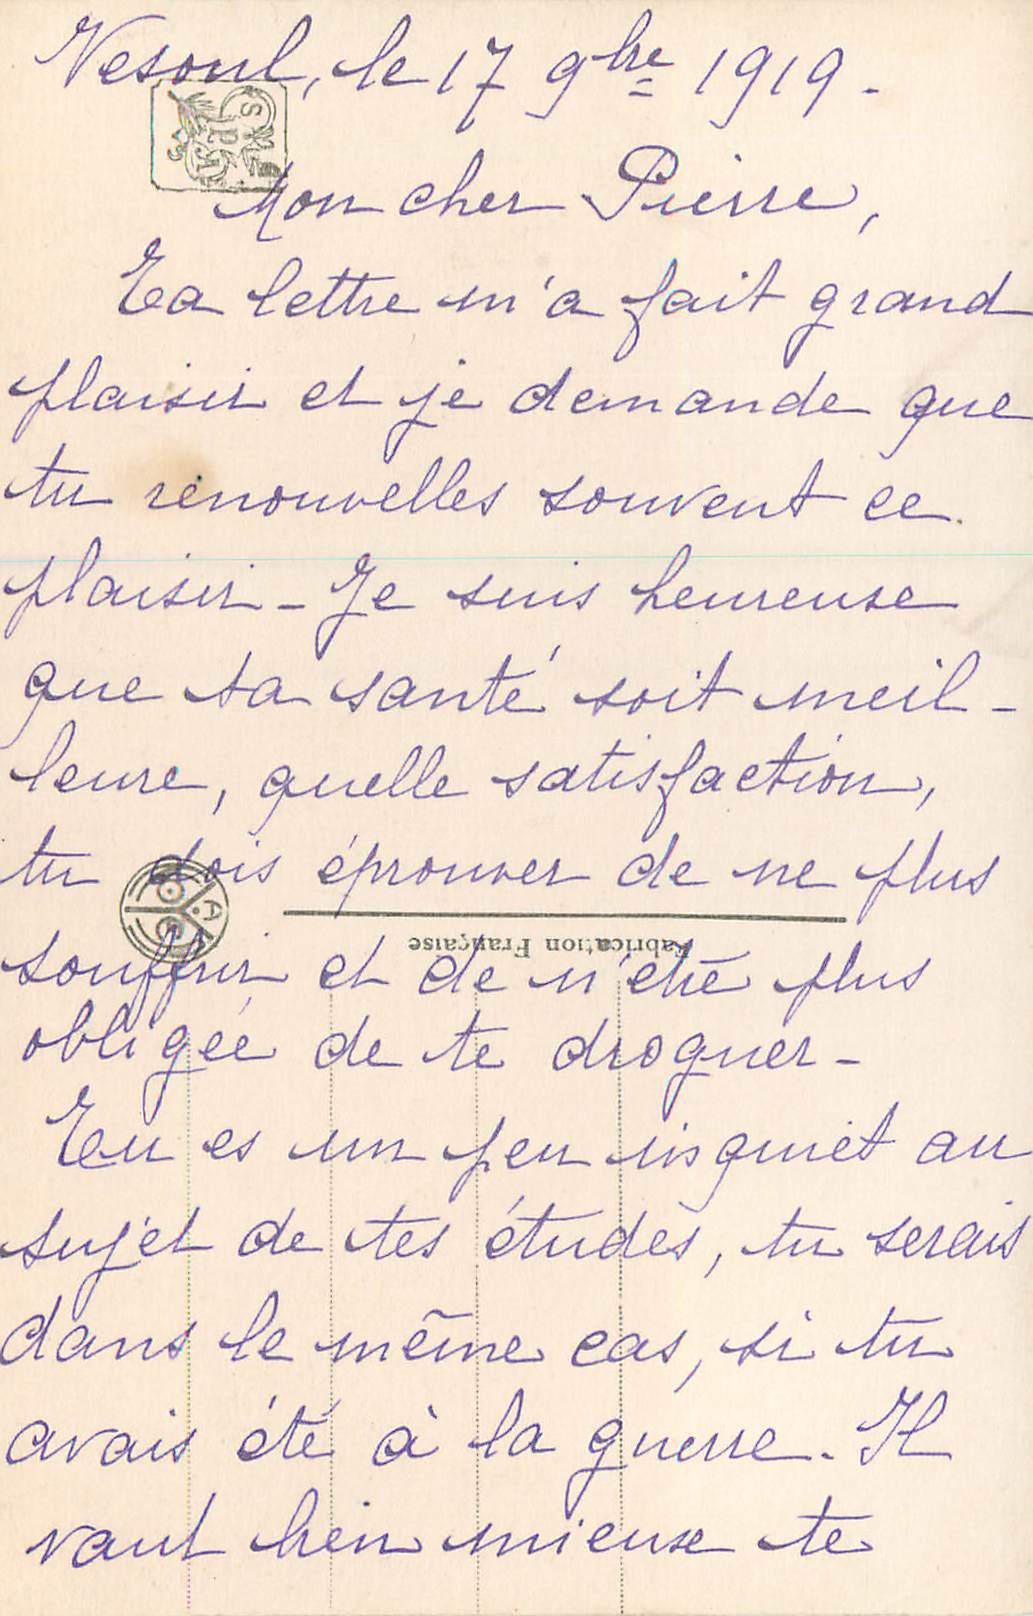 Vesoul, le 17 9bre 1919.
Mon cher Pierre,
Ta lettre m'a fait grand
plaisir et je demande que
tu renouvelles souvent ce
plaisir - Je suis heureuse
que ta santé soit meil-
leure, quelle satisfaction,
tu dois éprouver de ne plus
Fabrication Française
souffrir et de n'être plus
obligée de te droguer -
Tu es un peu inquiet au
sujet de tes études, tu serais
dans le même cas, si tu
avais été à la guerre. Il
vaut bien mieux te